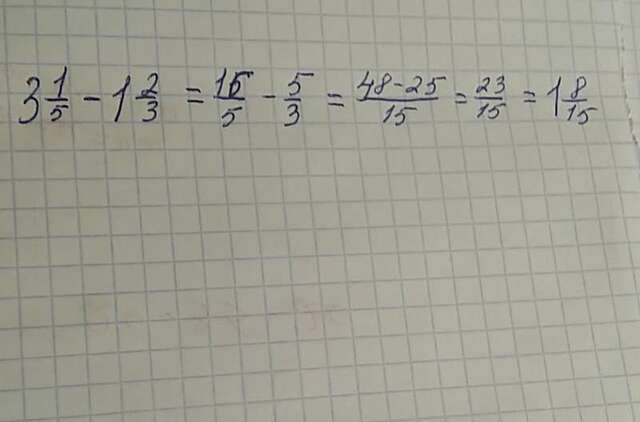 3 1/5 - 1 2/3 = 16/5 - 5/3 = 48-25/15 = 23/15 = 1 8/15